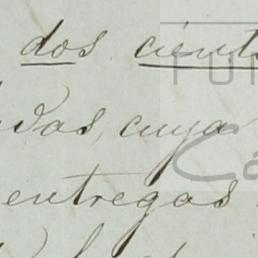 dos cient
das, cuya
entregas